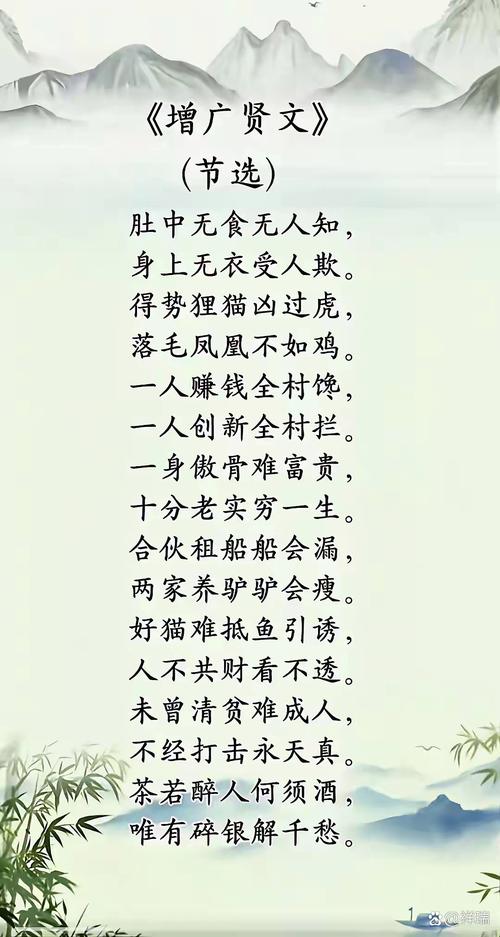 《增广贤文》
(节选)
肚中无食无人知，
身上无衣受人欺。
得势狸猫凶过虎，
落毛凤凰不如鸡。
一人赚钱全村馋，
一人创新全村拦。
一身傲骨难富贵，
十分老实穷一生。
合伙租船船会漏，
两家养驴驴会瘦。
好猫难抵鱼引诱，
人不共财看不透。
未曾清贫难成人，
不经打击永天真。
茶若醉人何须酒，
唯有碎银解千愁。
1
@祥瑞